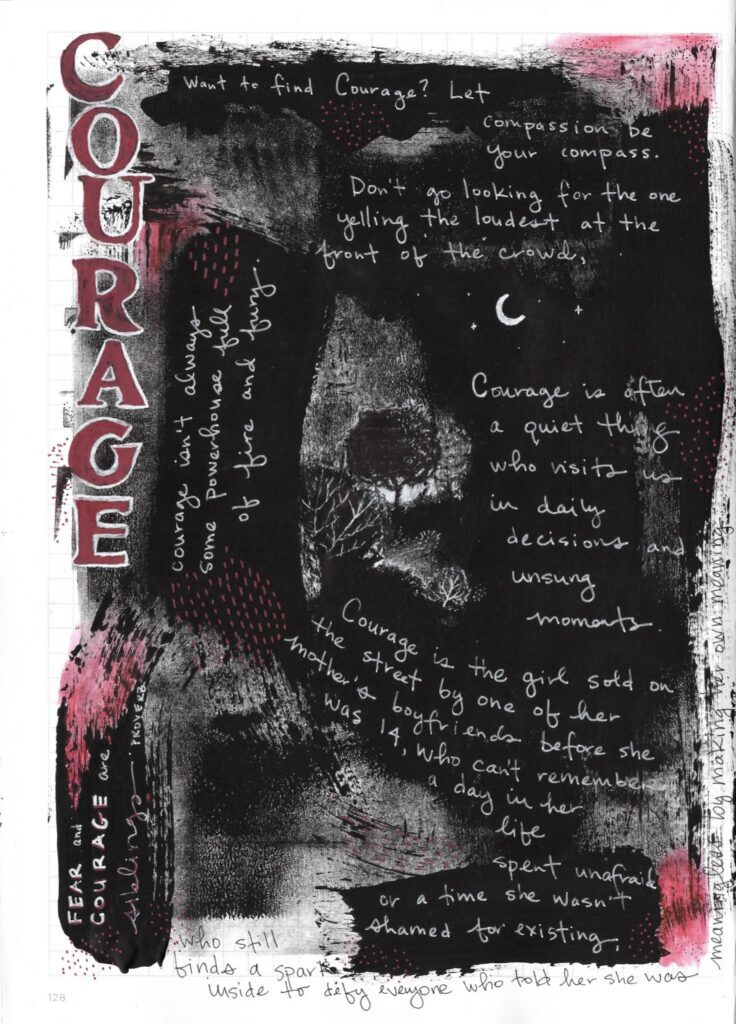 COURAGE
Want to find Courage? Let
compassion be
your compass.
Don't go looking for the one
yelling the loudest at the
front of the crowd,
courage isn't always
some powerhouse full
of fire and fury.
Courage is often
a quiet thing
who visits us
in daily
decisions and
unsung
moments.
Courage is the girl sold on
the street by one of her
mother's boyfriends before she
was 14, who can't remember
a day in her
life
spent unafraid
or a time she wasn't
shamed for existing,
who still
finds a spark
inside to defy everyone who told her she was
meaningless by making her own meaning.
FEAR and
COURAGE are
siblings. PROVERB
128